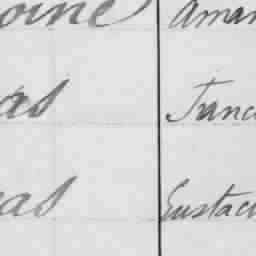 oine Aman
as Franc
as Eustac